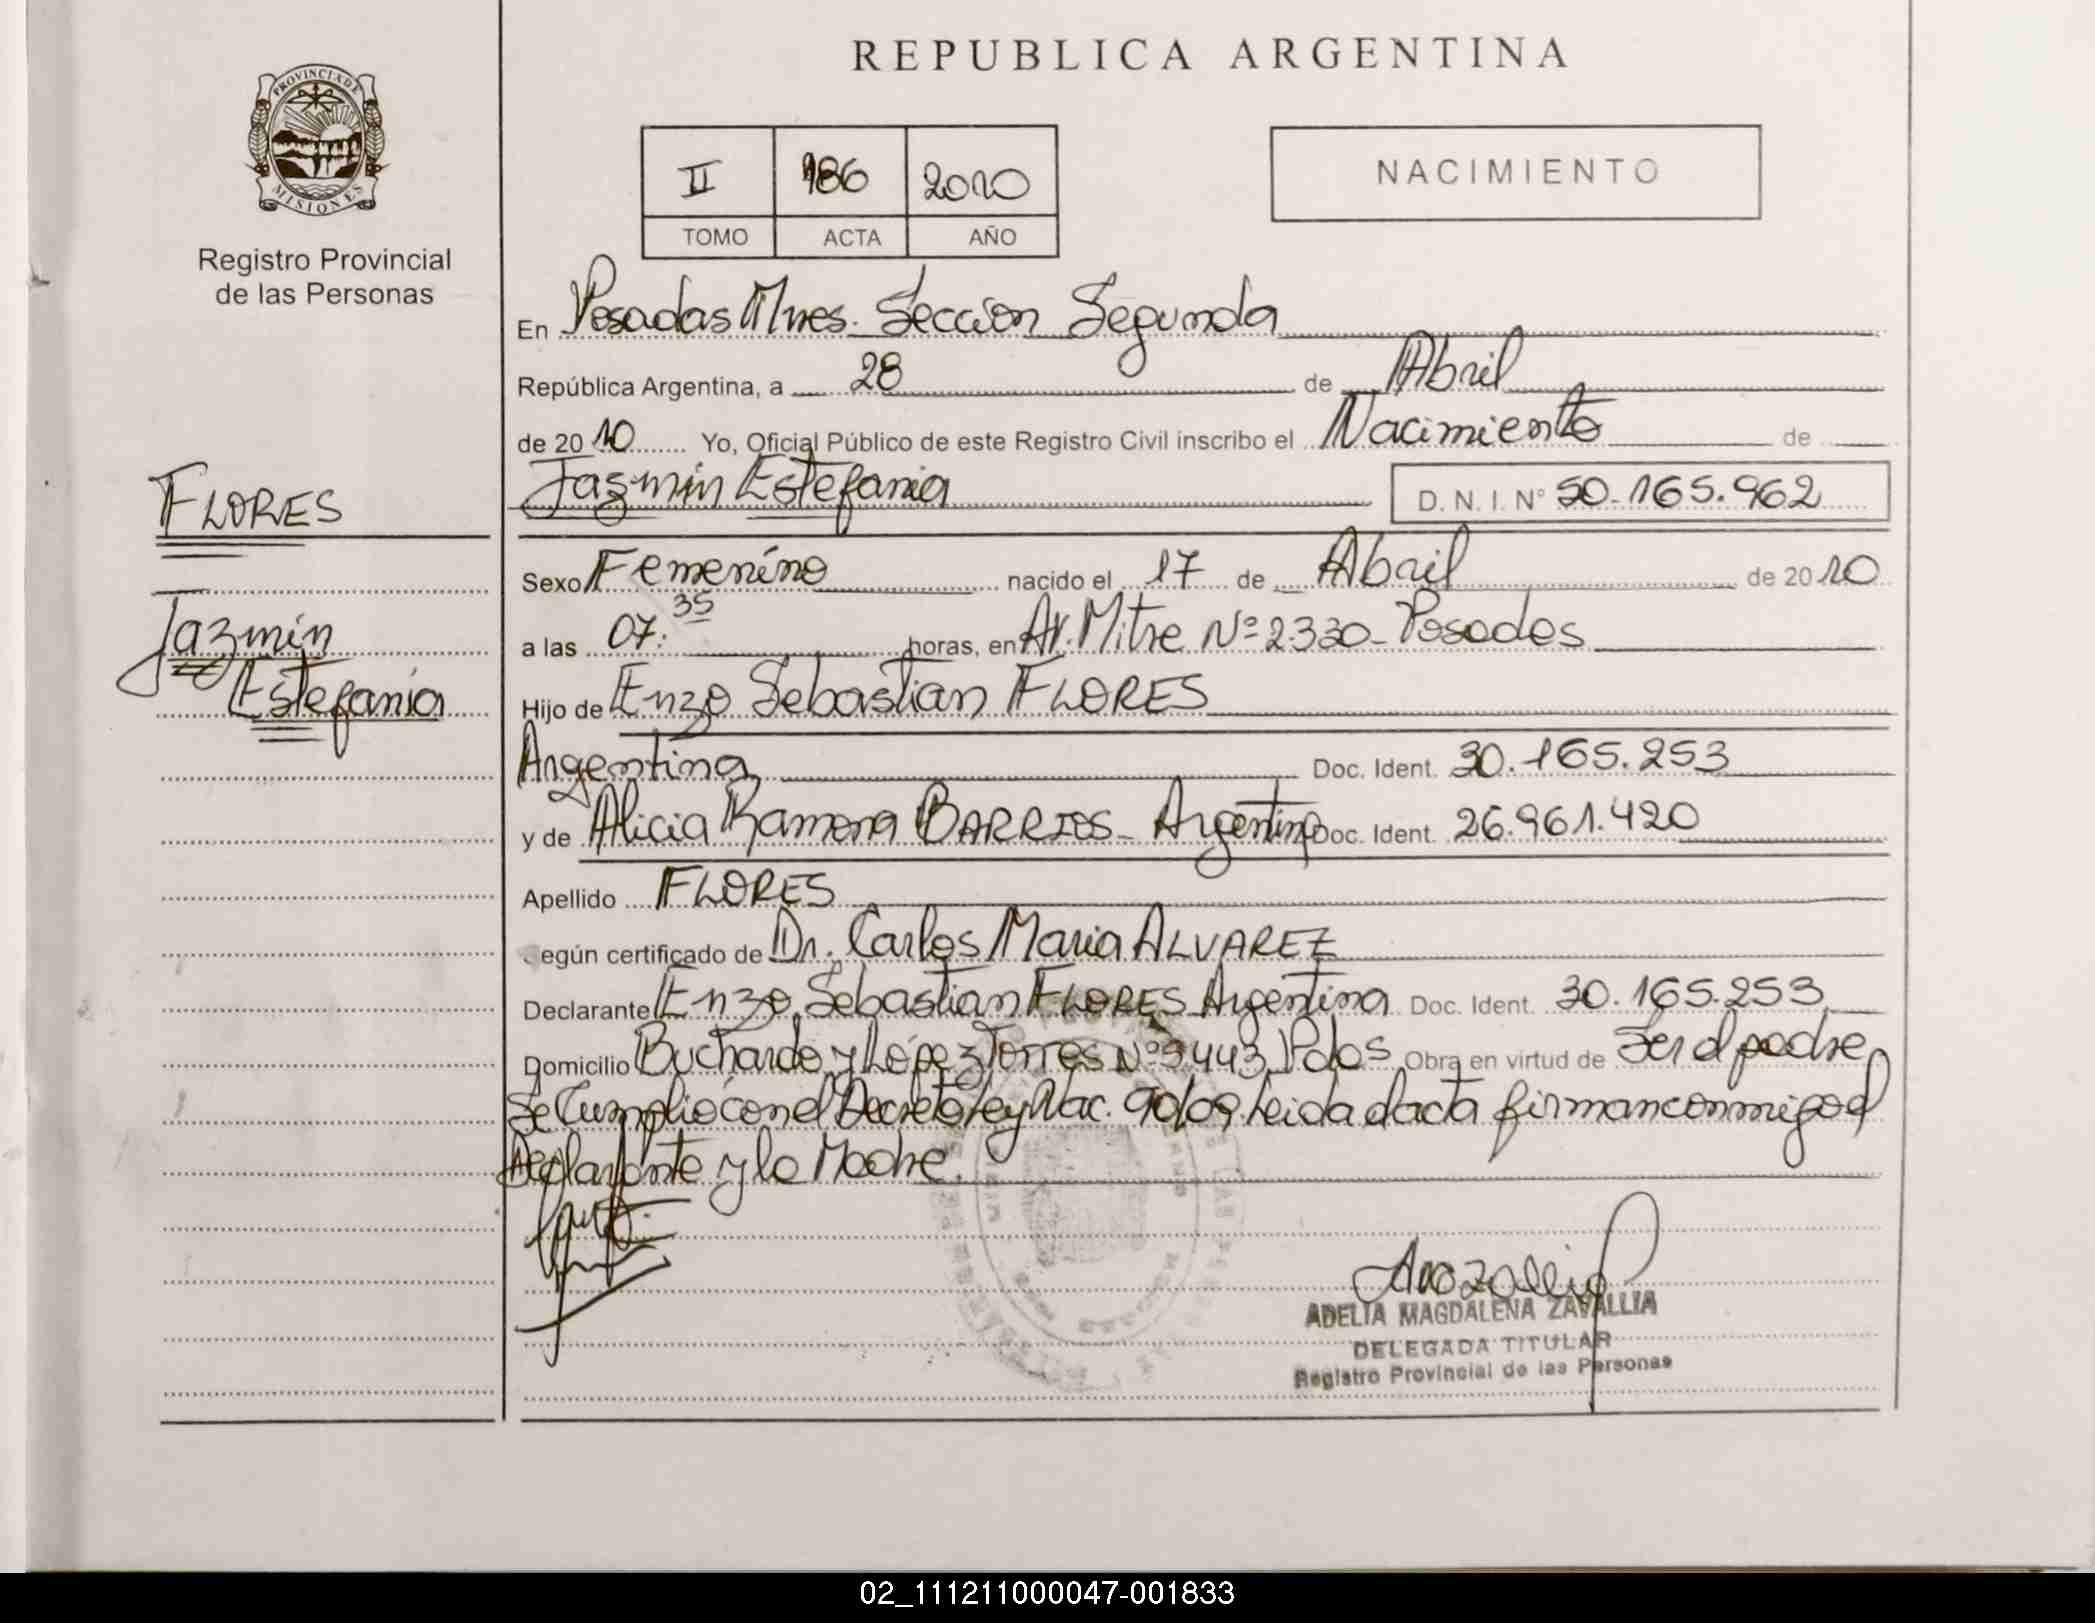 REPUBLICA ARGENTINA
PROVINCIA DE
MISIONES
Registro Provincial
de las Personas
II 186 2010
TOMO ACTA AÑO
NACIMIENTO
En Posadas Mnes. Sección Segunda
República Argentina, a 28 de Abril
de 2010 Yo, Oficial Público de este Registro Civil inscribo el Nacimiento de
Jazmín Estefania D. N. I. N° 50.165.962
FLORES
Jazmín
Estefanía
Sexo Femeníno nacido el 17 de Abril de 2010
a las 07:35 horas, en Av. Mitre Nº 2.330 - Posadas
Hijo de Enzo Sebastian FLORES
Argentina Doc. Ident. 30.165.253
y de Alicia Ramona BARRIOS - Argentina Doc. Ident. 26.961.420
Apellido FLORES
egún certificado de Dr. Carlos Maria ALVAREZ
Declarante Enzo Sebastian FLORES Argentina Doc. Ident. 30.165.253
Domicilio Buchardo y López Torres Nº 9443 Pdas Obra en virtud de Ser el padre
Se Cumplió con el Decreto Ley Nac. 90/09. Leida el acta firman conmigo el
Declarante y la Madre.
ADELIA MAGDALENA ZAVALLIA
DELEGADA TITULAR
Registro Provincial de las Personas
02_111211000047-001833